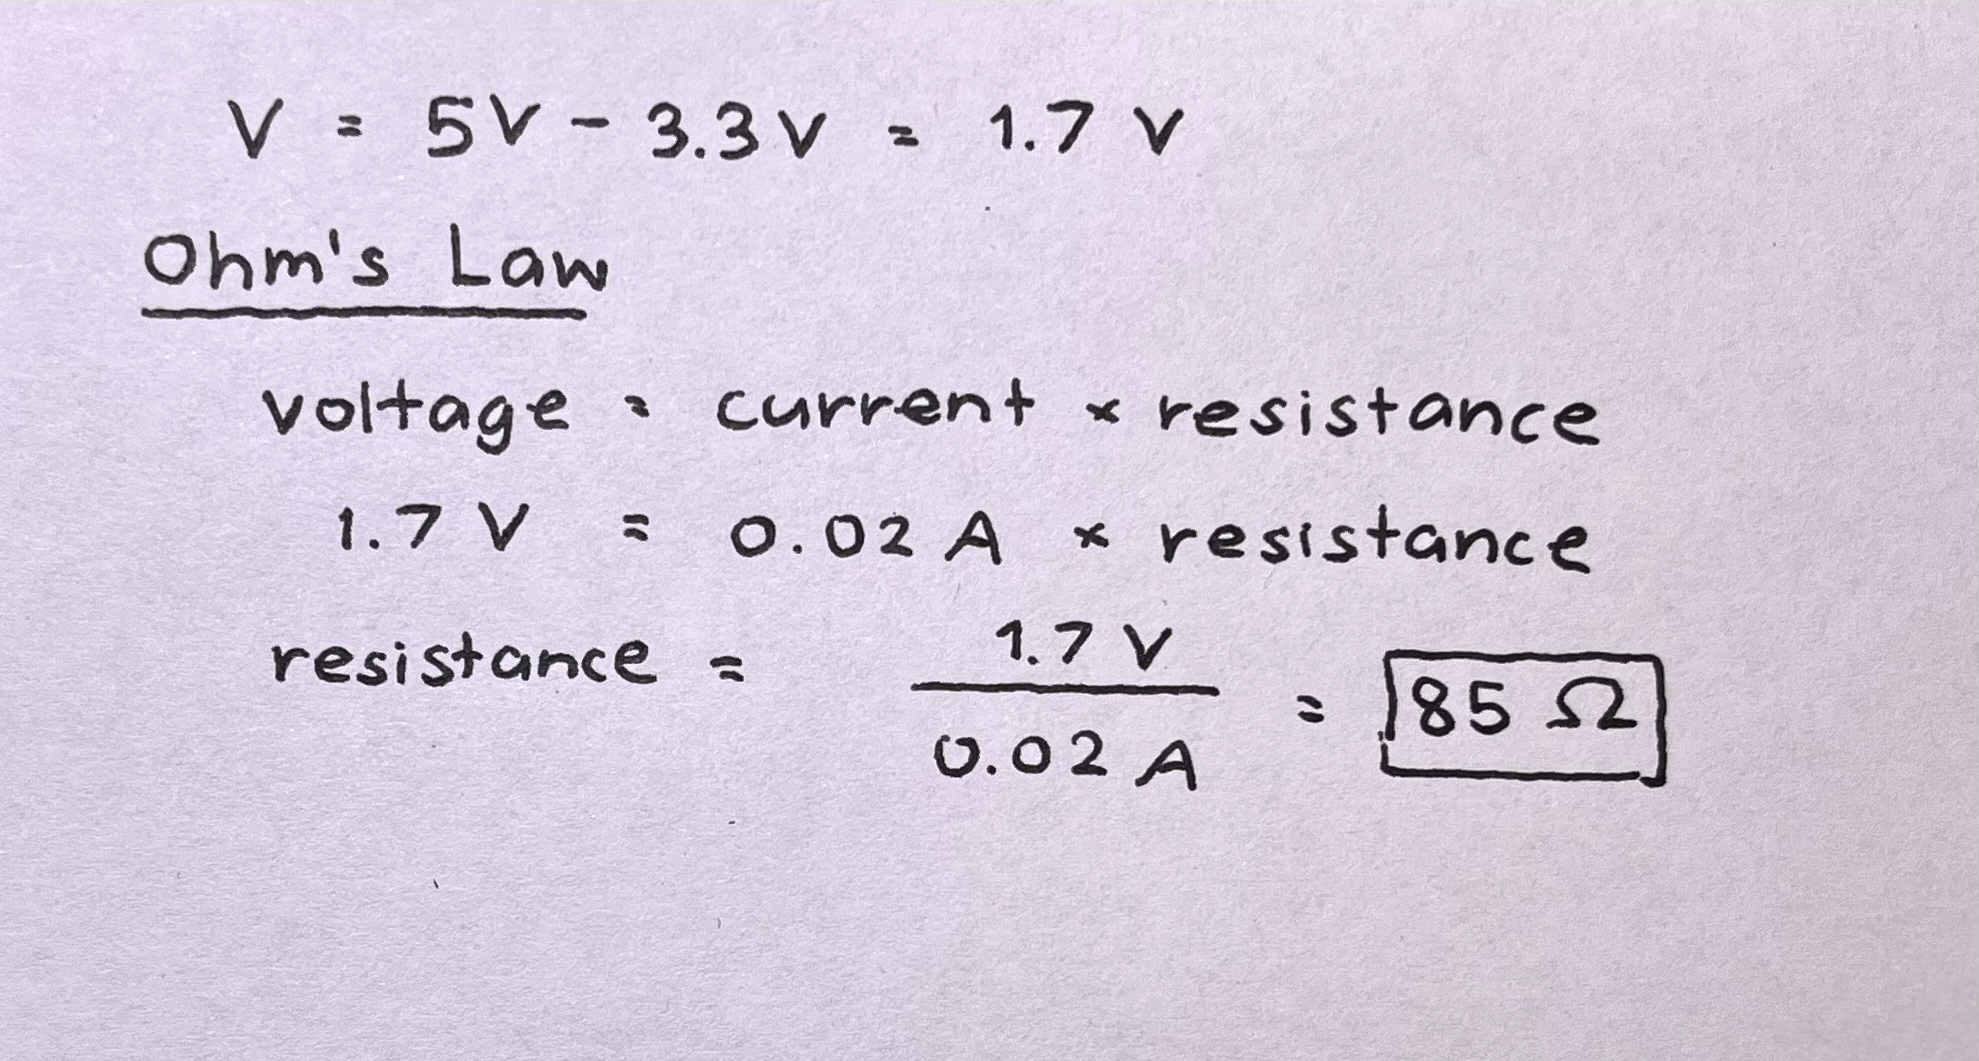 V = 5V - 3.3V = 1.7 V
Ohm's Law
voltage = current × resistance
1.7 V = 0.02 A × resistance
resistance = 1.7 V / 0.02 A = 85 Ω